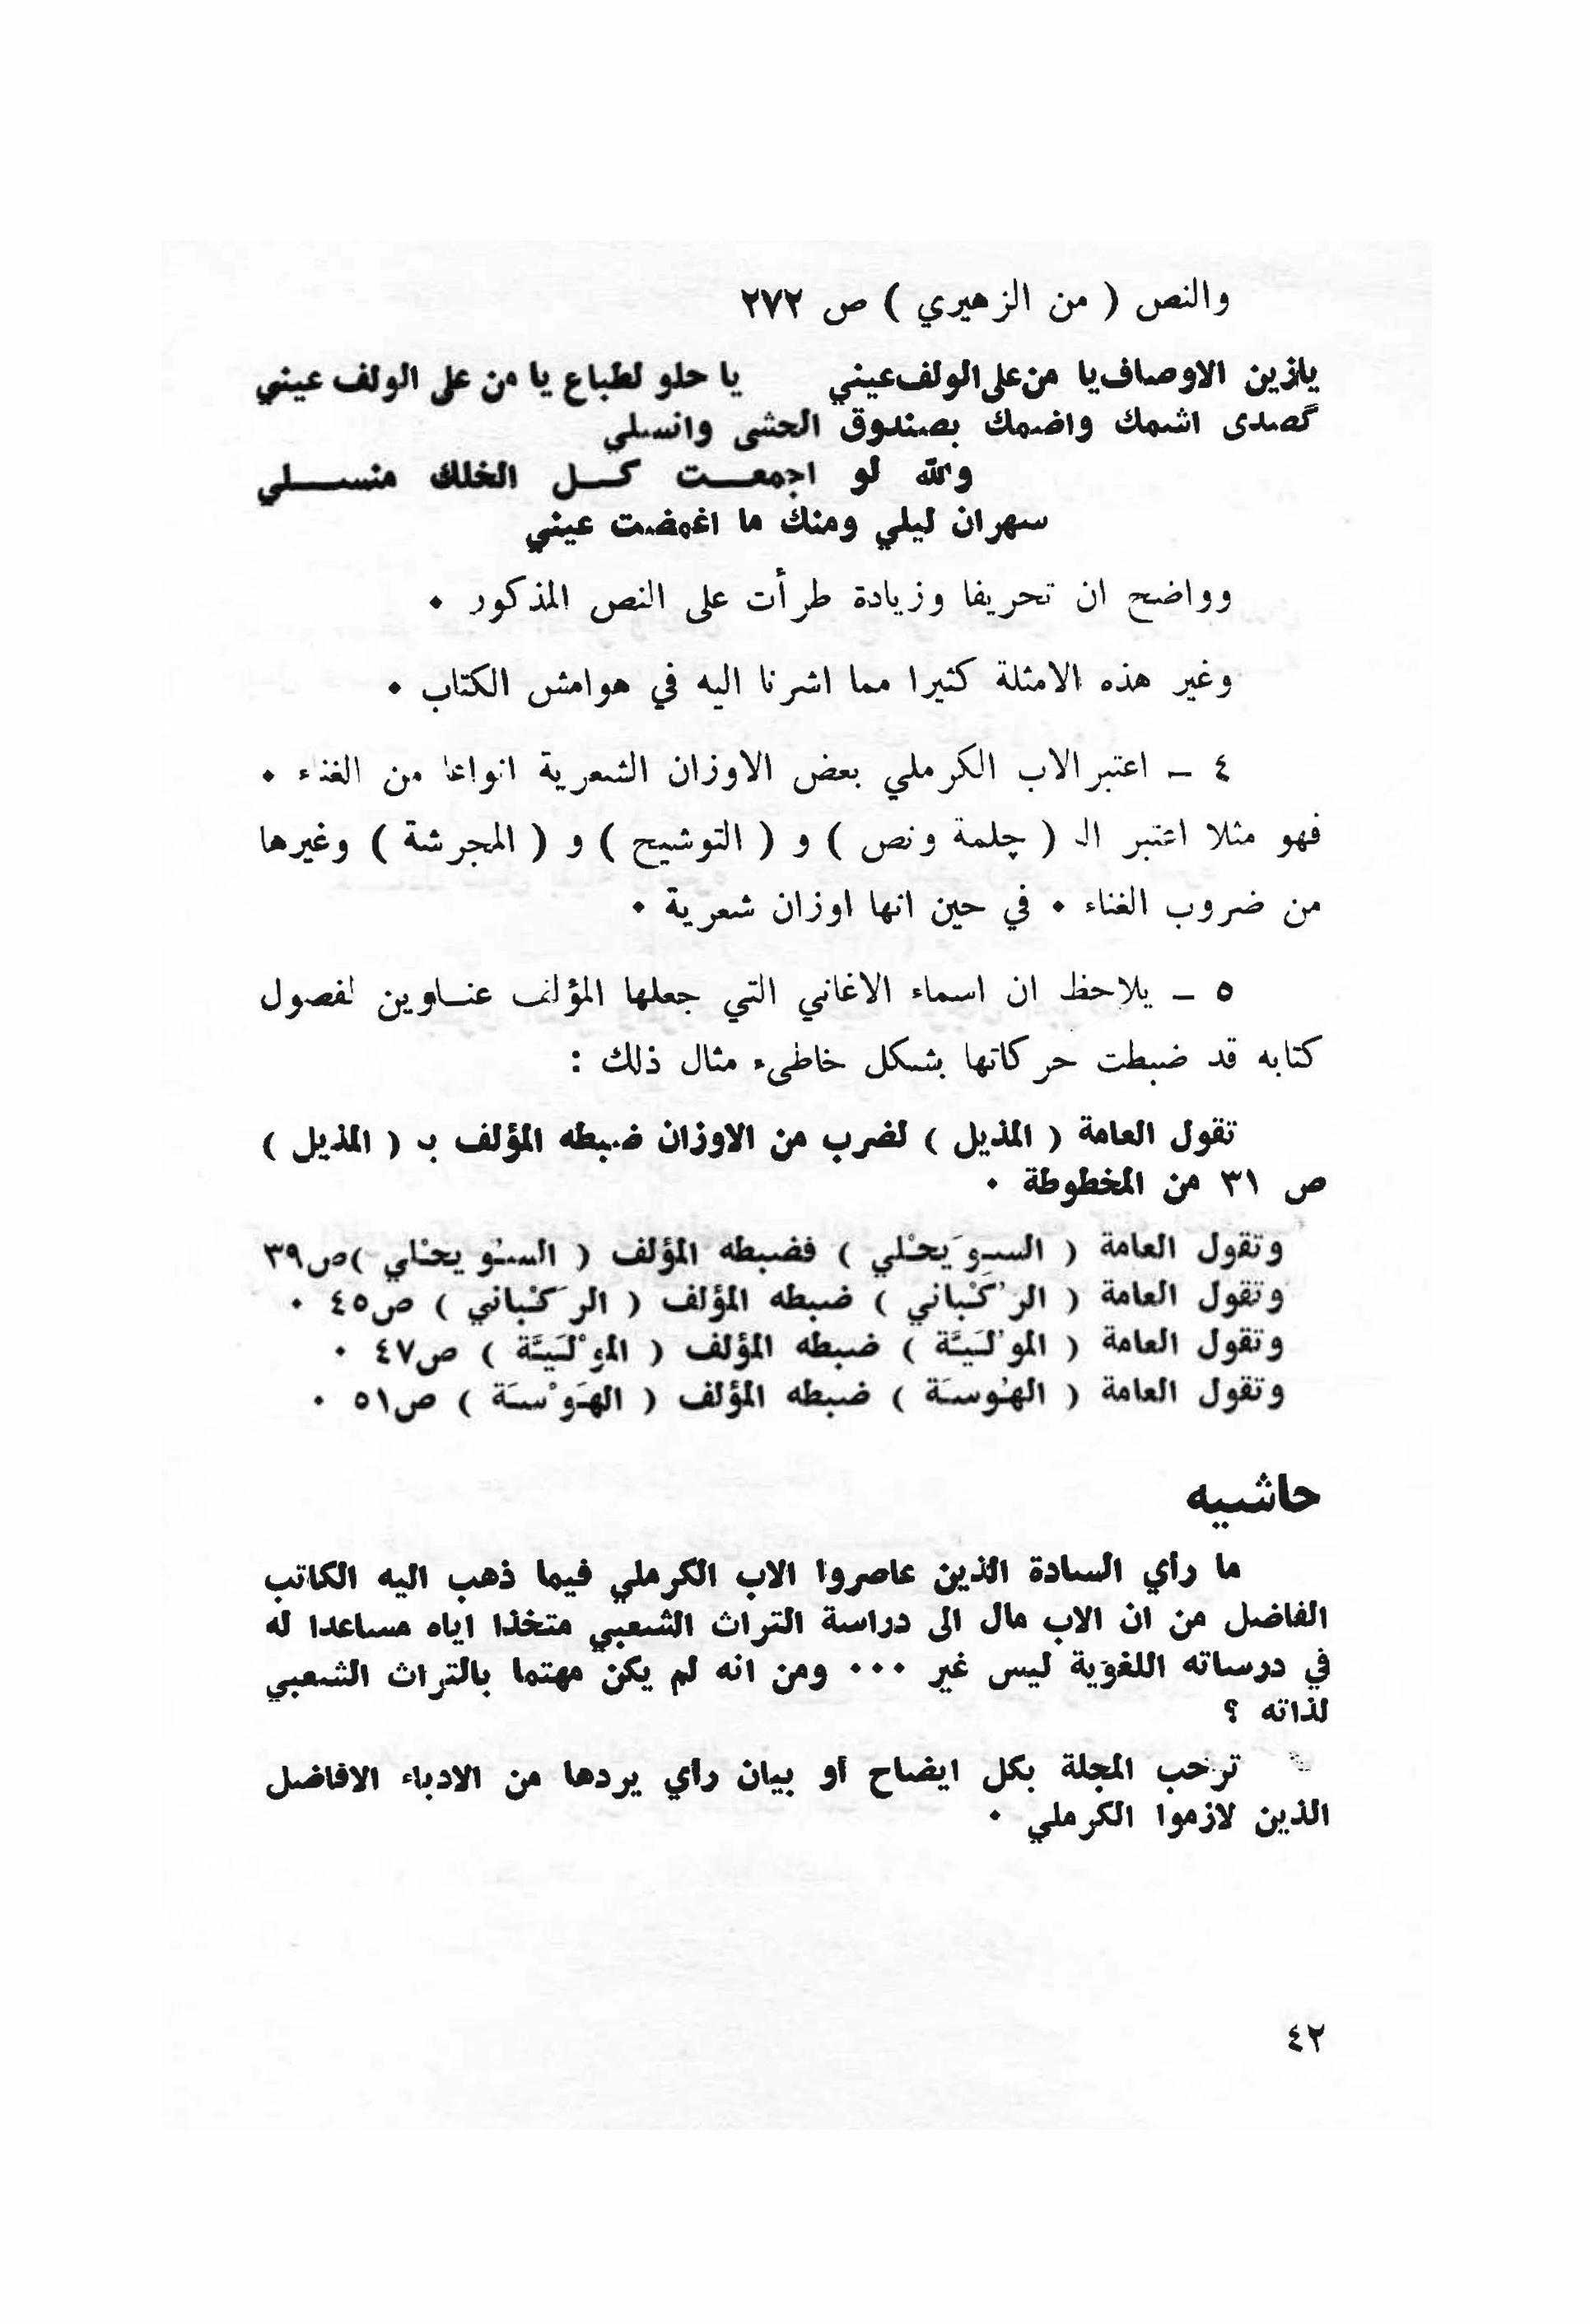 والنص ( من الزهيري ) ص ٢٧٢
يازين الاوصاف يا من على الولف عيني يا حلو لطباع يا من على الولف عيني
گصدى اشمك واضمك بصندوق الحشى وانسلي
والله لو اجمعت كل الخلك منسلي
سهران ليلي ومنك ما اغمضت عيني
وواضح ان تحريفا وزيادة طرأت على النص المذكور ٠
وغير هذه الامثلة كثيرا مما اشرنا اليه في هوامش الكتاب ٠
٤ – اعتبر الاب الكرملي بعض الاوزان الشعرية انواعا من الغناء ٠
فهو مثلا اعتبر الـ ( چلمة ونص ) و ( التوشيح ) و ( المجرشة ) وغيرها
من ضروب الغناء ٠ في حين انها اوزان شعرية ٠
٥ – يلاحظ ان اسماء الاغاني التي جعلها المؤلف عناوين لفصول
كتابه قد ضبطت حركاتها بشكل خاطىء مثال ذلك :
تقول العامة ( المذيل ) لضرب من الاوزان ضبطه المؤلف بـ ( المذيل )
ص ٣١ من المخطوطة ٠
وتقول العامة ( السِوَيحْلي ) فضبطه المؤلف ( السُويحْلي )ص٣٩
وتقول العامة ( الرُكْباني ) ضبطه المؤلف ( الرَكْباني ) ص٤٥ ٠
وتقول العامة ( الموُلَيَّة ) ضبطه المؤلف ( الموْلَيَّة ) ص٤٧ ٠
وتقول العامة ( الهُوسَة ) ضبطه المؤلف ( الهَوْسَة ) ص٥١ ٠
حاشيه
ما رأي السادة الذين عاصروا الاب الكرملي فيما ذهب اليه الكاتب
الفاضل من ان الاب مال الى دراسة التراث الشعبي متخذا اياه مساعدا له
في درساته اللغوية ليس غير ٠٠٠ ومن انه لم يكن مهتما بالتراث الشعبي
لذاته ؟
ترحب المجلة بكل ايضاح أو بيان رأي يردها من الادباء الافاضل
الذين لازموا الكرملي ٠
٤٢